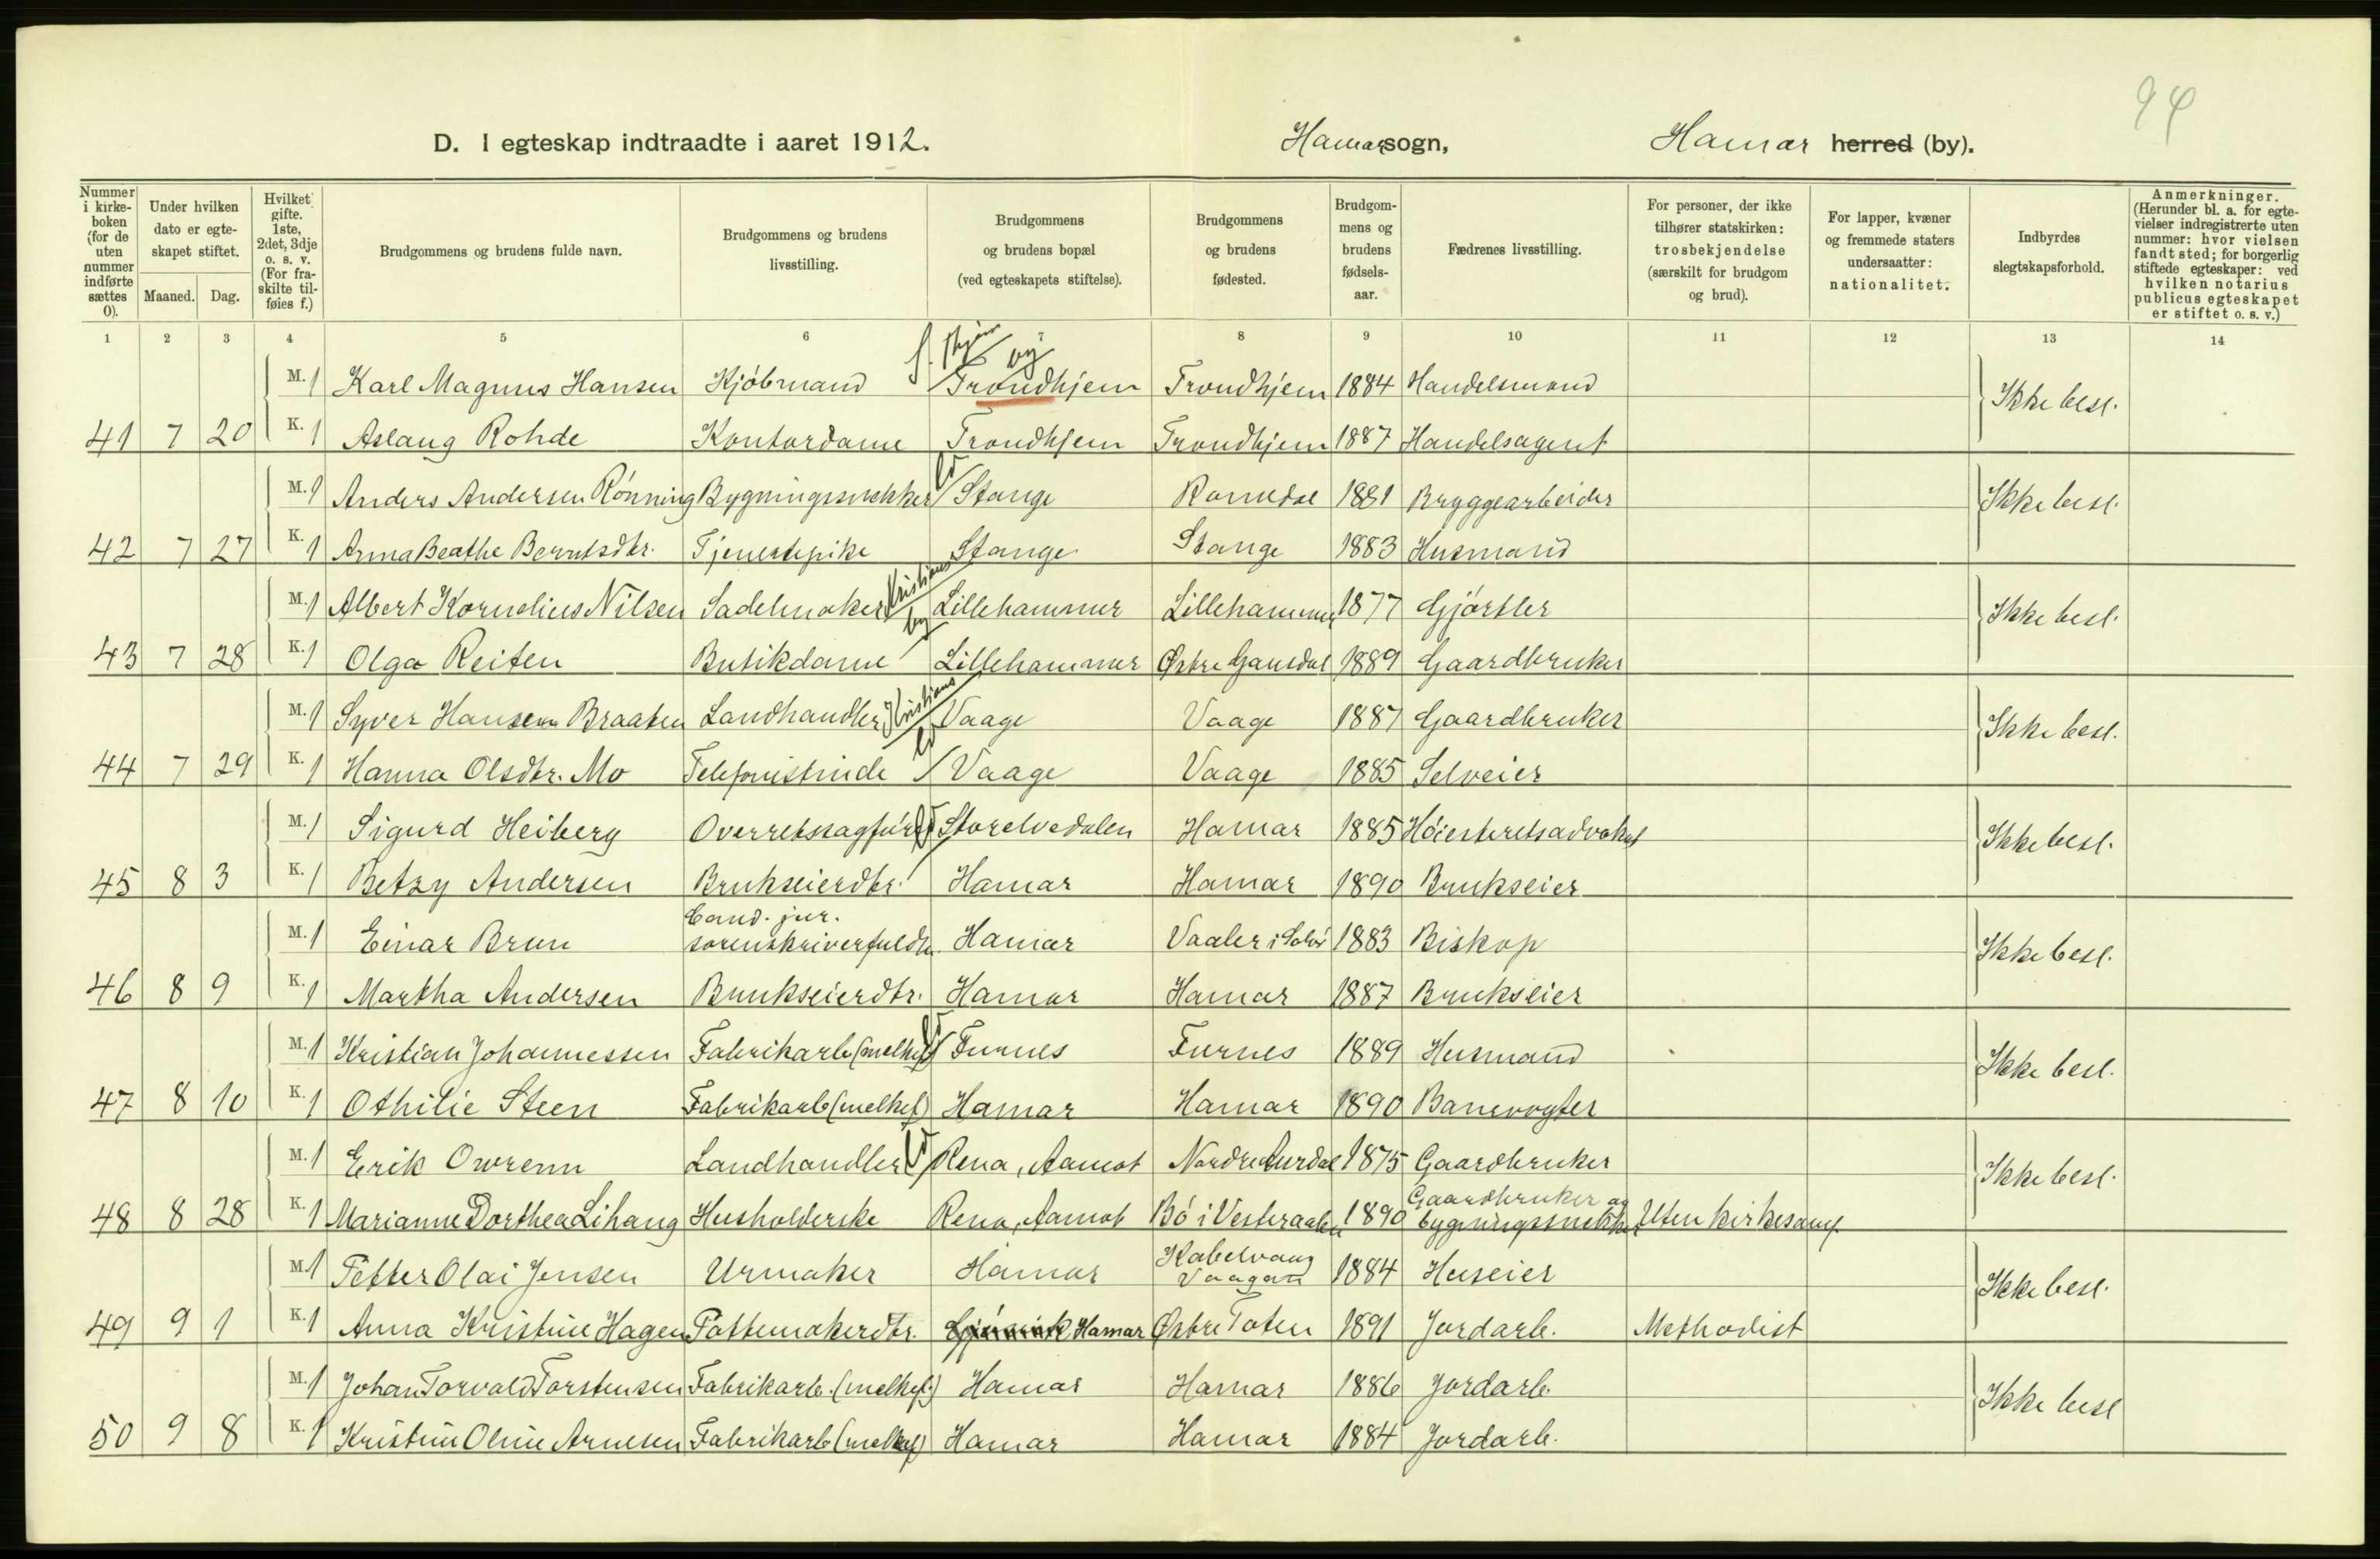 94
D. I egteskap indtraadte i aaret 1912. Hamar sogn, Hamar herred (by).
Nummer i kirkeboken (for de uten nummer indførte sættes 0).
Under hvilken dato er egteskapet stiftet.
Maaned. Dag.
Hvilket gifte. 1ste, 2det, 3dje o. s. v. (For fraskilte tilføies f.)
Brudgommens og brudens fulde navn.
Brudgommens og brudens livsstilling.
Brudgommens og brudens bopæl (ved egteskapets stiftelse).
Brudgommens og brudens fødested.
Brudgommens og brudens fødselsaar.
Fædrenes livsstilling.
For personer, der ikke tilhører statskirken: trosbekjendelse (særskilt for brudgom og brud).
For lapper, kvæner og fremmede staters undersaatter: nationalitet.
Indbyrdes slegtskapsforhold.
Anmerkninger. (Herunder bl. a. for egtevielser indregistrerte uten nummer: hvor vielsen fandt sted; for borgerlig stiftede egteskaper: ved hvilken notarius publicus egteskapet er stiftet o. s. v.)
1 2 3 4 5 6 7 8 9 10 11 12 13 14
by
M. 1 Karl Magnus Hansen Kjöbmand Trondhjem Trondhjem 1884 Handelsmand Ikke besl.
41 7 20 K. 1 Aslaug Rohde Kontordame Trondhjem Trondhjem 1887 Handelsagent
M. 1 Anders Andersen Rönning Bygningssnekker ld Stange Romedal 1881 Bryggearbeider Ikke besl.
42 7 27 K. 1 Anna Beathe Berntsdtr. Tjenestepike Stange Stange 1883 Husmand
M. 1 Albert Kornelius Nilsen Sadelmaker Kristians by Lillehammer Lillehammer 1877 Gjörtler Ikke besl.
43 7 28 K. 1 Olga Reiten Butikdame Lillehammer Østre Gausdal 1889 Gaardbruker
M. 1 Syver Hansen Braaten Landhandler Kristians ld Vaage Vaage 1887 Gaardbruker Ikke besl.
44 7 29 K. 1 Hanna Olsdtr. Mo Telefonistinde Vaage Vaage 1885 Selveier
M. 1 Sigurd Heiberg Overretssagförer ld Storelvedalen Hamar 1885 Höiesteretsadvokat Ikke besl.
45 8 3 K. 1 Betzy Andersen Brukseierdtr. Hamar Hamar 1890 Brukseier
Cand. jur.
M. 1 Einar Brun sorenskriverfuldm. Hamar Vaaler i Solör 1883 Biskop Ikke besl.
46 8 9 K. 1 Martha Andersen Brukseierdtr. Hamar Hamar 1887 Brukseier
M. 1 Kristian Johannessen Fabrikarb (melkef) ld Furnes Furnes 1889 Husmand Ikke besl.
47 8 10 K. 1 Othilie Steen Fabrikarb (melkef) Hamar Hamar 1890 Banevogter
M. 1 Erik Owrenn Landhandler ld Rena, Aamot Nordre Aurdal 1875 Gaardbruker Ikke besl.
Gaardbruker og
48 8 28 K. 1 Marianne Dorthea Lihaug Husholderske Rena, Aamot Bö i Vesteraalen 1890 bygningssnekker Uten kirkesamf.
Kabelvaag
M. 1 Petter Olai Jensen Urmaker Hamar Vaagan 1884 Huseier Ikke besl.
49 9 1 K. 1 Anna Kristine Hagen Pottemakerdtr. Gjörvik Hamar Østre Toten 1891 Jordarb. Methodist
M. 1 Johan Torvald Torstensen Fabrikarb. (melkef.) Hamar Hamar 1886 Jordarb. Ikke besl
50 9 8 K. 1 Kristine Oline Arnesen Fabrikarb (melkef) Hamar Hamar 1884 Jordarb.